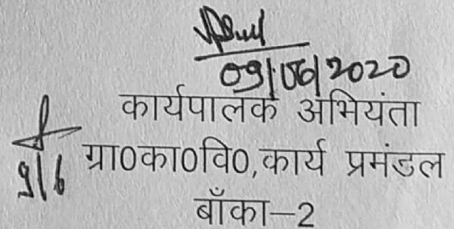 09/06/2020
कार्यपालक अभियंता
9/6 ग्रा0का0वि0,कार्य प्रमंडल
बाँका-2